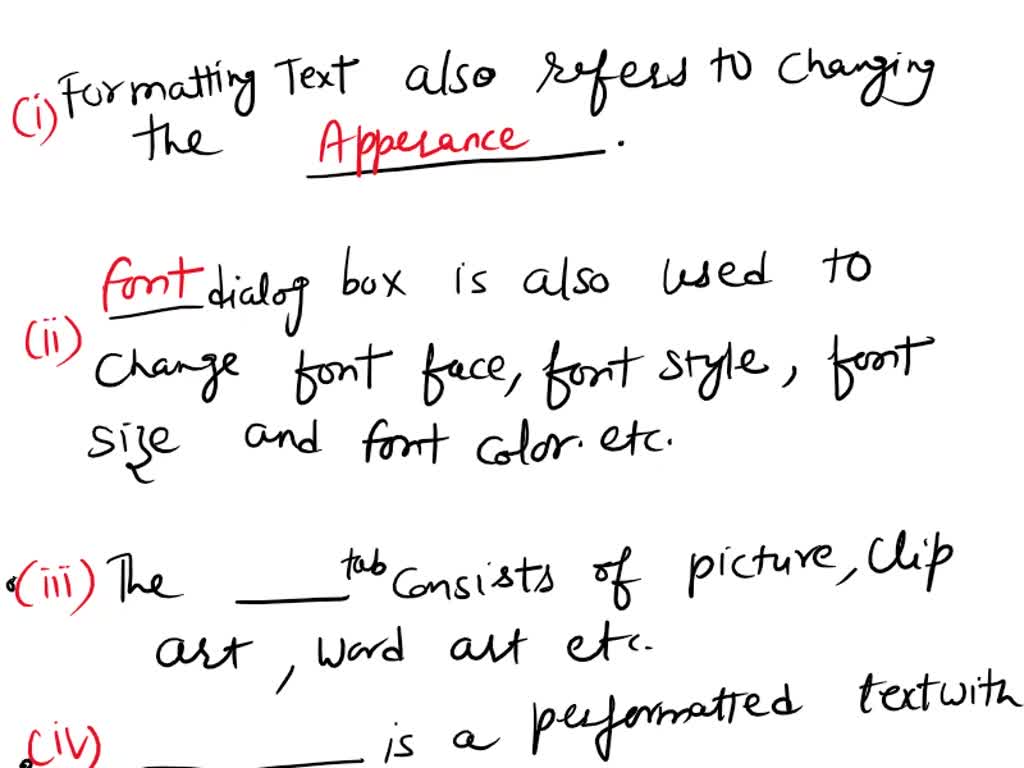 (i) Formatting Text also refers to changing
the Apperance.
(ii) font dialog box is also used to
change font face, font style, font
size and font color. etc.
(iii) The ____ tab consists of picture, Clip
art, word art etc.
(iv) ____ is a performatted text with